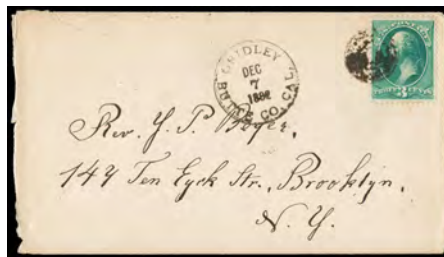 GRIDLEY
DEC
7
1882
BUTTE CO. CAL
THREE 3 CENTS
Rev. J. P. Boyer,
149 Ten Eyck Str., Brooklyn,
N. Y.